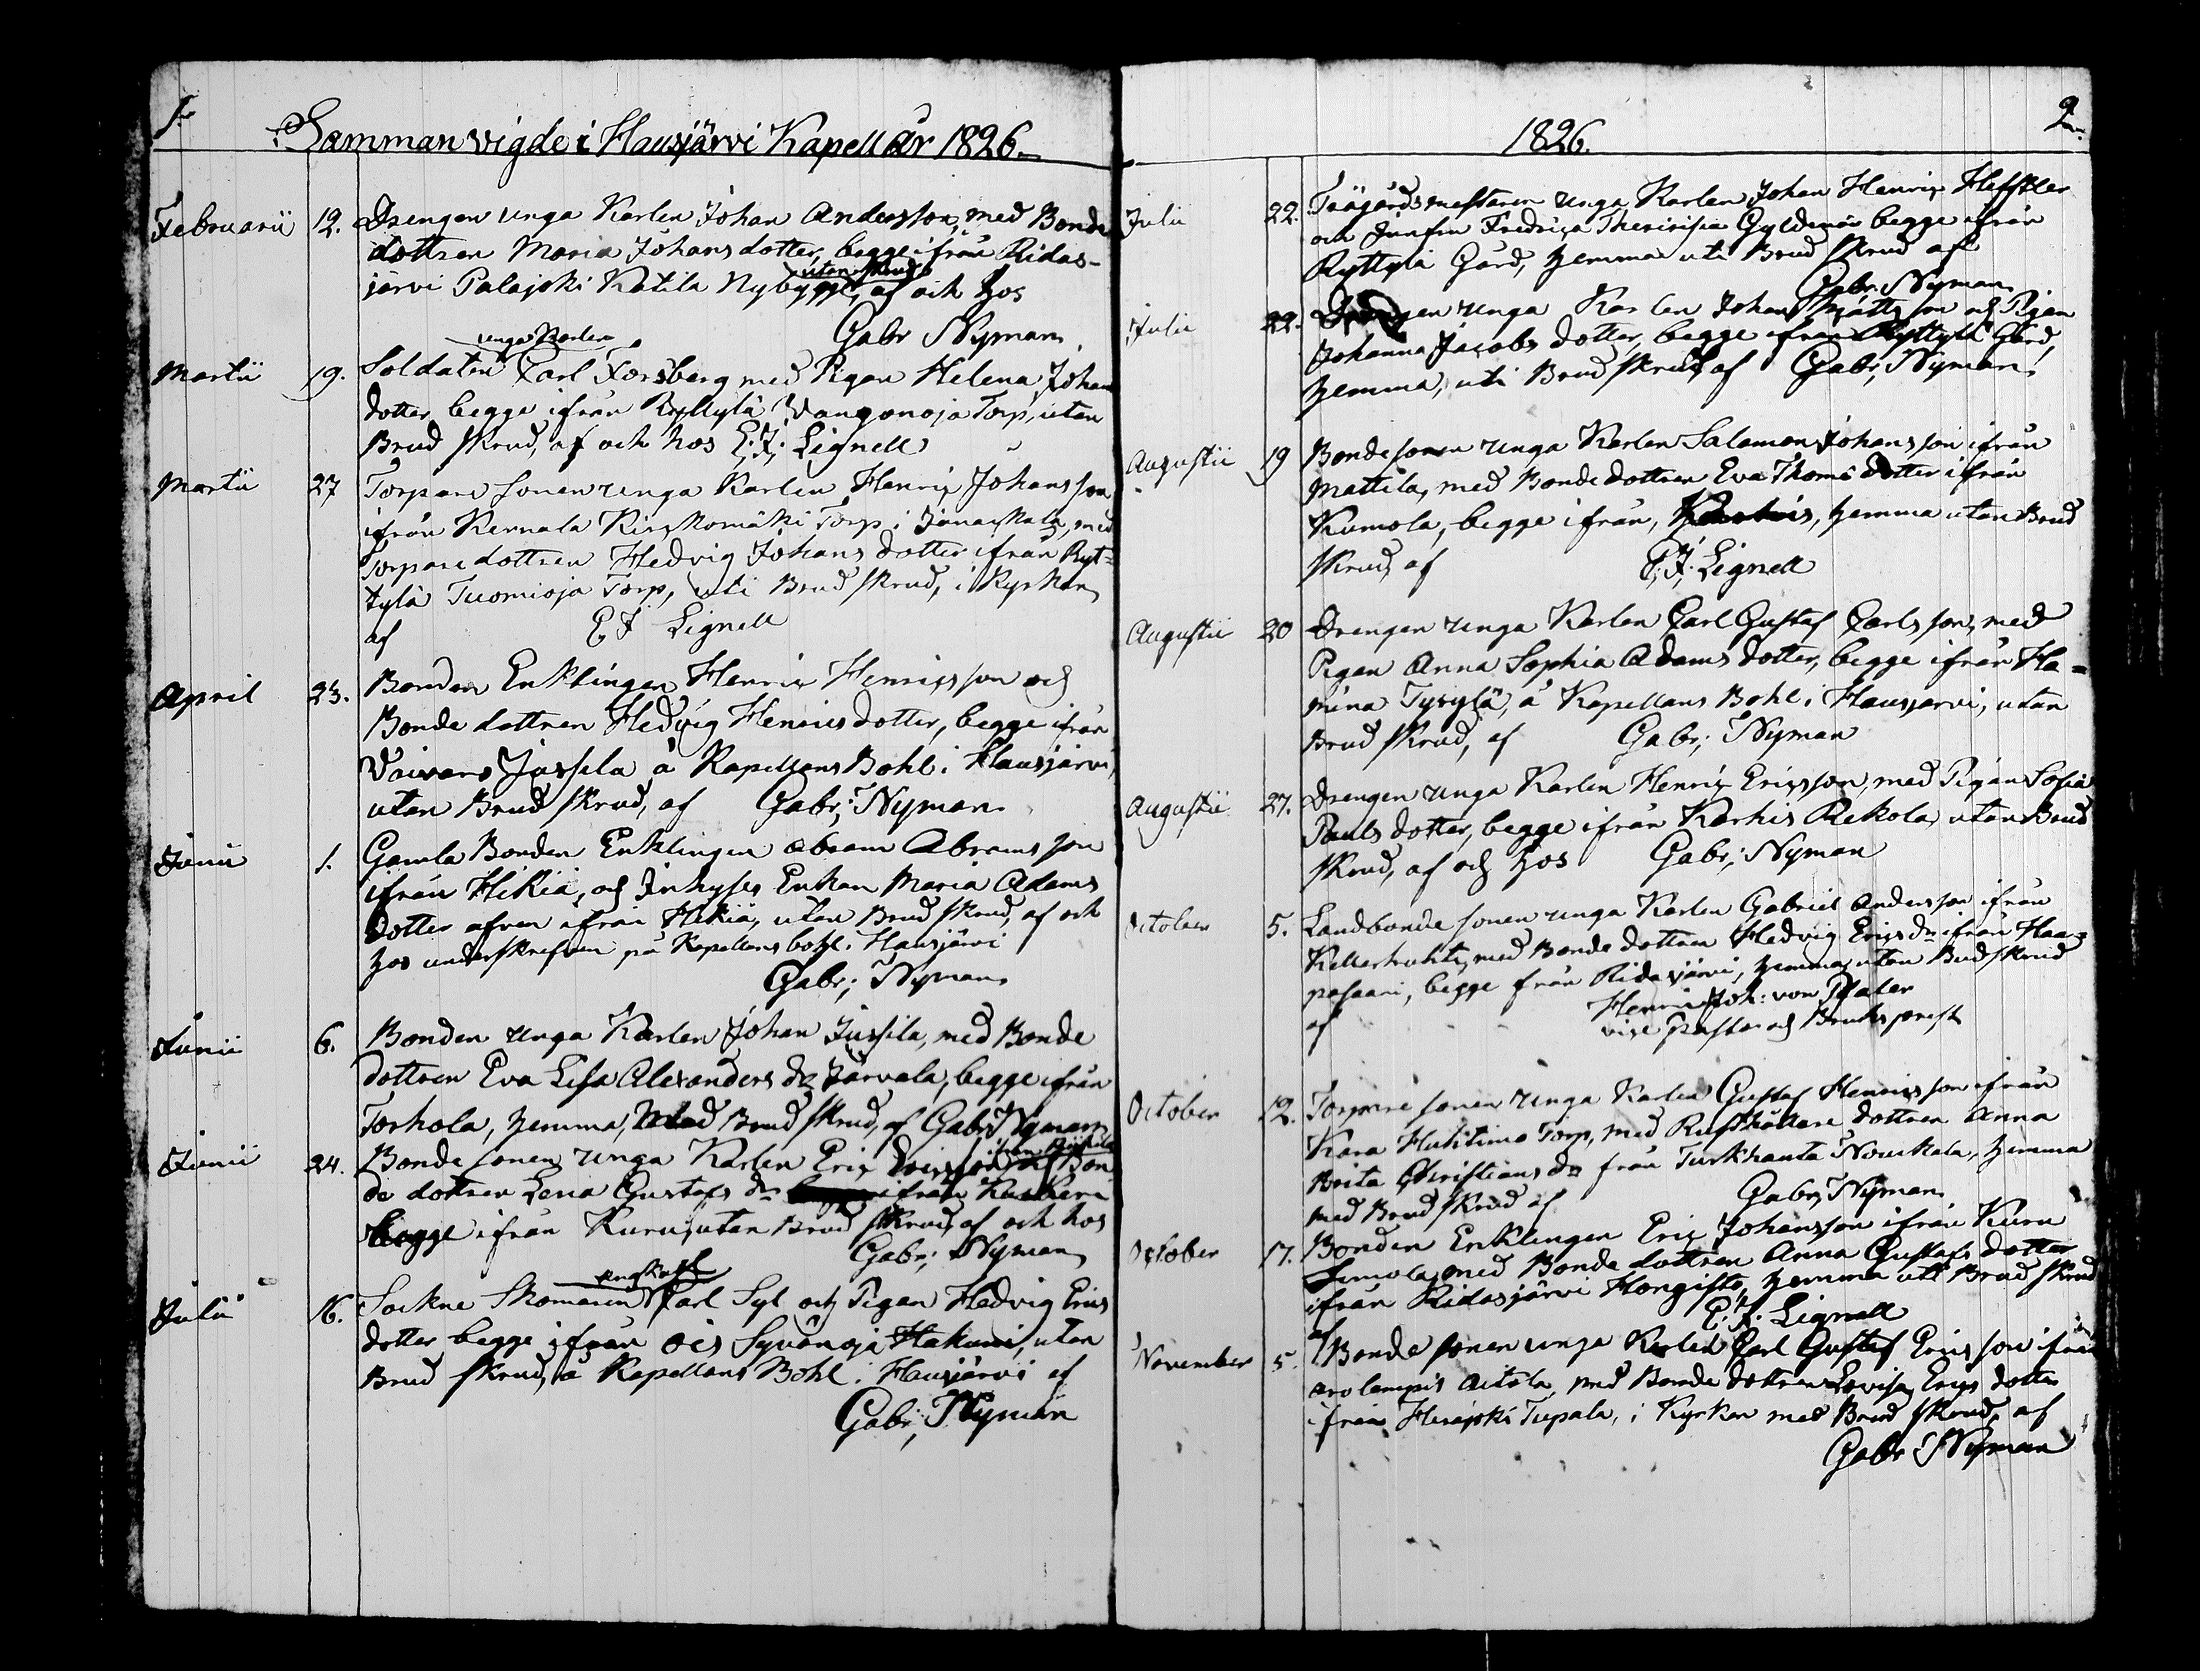 1.
Sammanvigde i Hausjärvi Kapell År 1826.
Februarii 12. Drengen unga Karlen Johan Andersson, med Bonde
dottren Maria Johans dotter, begge ifrån Ridas-
utan skrud
järvi Palajoki Katila Nybygge, af och hos
Gabr Nyman
unga Karlen
Martii 19. Soldaten Carl Forsberg med Pigan Helena Johans
dotter, begge ifrån Ryttylä Torp, utan
Brud skrud, af och hos E. J. Lignell
Martii 27 Torpare sonen unga Karlen Henric Johansson
ifrån Kernala Torp i Janackala, med
Torpare dottren Hedvig Johans dotter ifrån Ryt-
tylä Tuomioja Torp, uti Brud skrud, i Kyrkan
af E J Lignell
April 23. Bonden Enklingen Henric Henricsson och
Bonde dottren Hedvig Henrics dotter, begge ifrån
Vaivars Jussila å Kapellans Bohl i Hausjärvi,
utan Brud skrud, af Gabr; Nyman
Junii 1. Gamla Bonden Enklingen Abram Abramsson
ifrån Hikiä, och Inhyses Enkan Maria Adams
dotter afven ifrån Hikiä, utan Brud skrud, af och
hos underskrifven på Kapellans bohl i Hausjärvi
Gabr; Nyman
Junii 6. Bonden unga Karlen Johan Jussila, med Bonde
dottren Eva Lisa Alexanders dr Järvala, begge ifrån
Torhola, hemma, Brud skrud, af Gabr Nyman
Junii 24. Bonde sonen unga Karlen Eric Ericsson och Bon
de dottren Lena Gustafs dr ifrån
begge ifrån Kuru, utan Brud skrud, af och hos
Gabr; Nyman
Julii 16. Sockne Skomaren Carl Syl och Pigan Hedvig Erics
dotter begge ifrån Ois Syvänoja Hakuni, utan
Brud skrud, å Kapellans Bohl i Hausjärvi af
Gabr; Nyman
1826.
2.
Julii 22. Trägårdsmestaren unga Karlen Johan Henric Heffsler
och Junfru Fredrica begge ifrån
Ryttylä Gård, hemma uti Brud skrud af
Gabr. Nyman
Julii 22. Drengen unga Karlen Johan Mattsson och Pigan
Johanna Jacobs dotter, begge ifrån Ryttylä Gård,
hemma, uti Brud skrud, af Gabr; Nyman
Augustii 19 Bondesonen unga Karlen Salomon Johansson ifrån
Mattila, med Bondedottren Eva Thoms dotter ifrån
Kumola, begge ifrån, hemma utan Brud
skrud, af E. J. Lignell
Augustii 20 Drengen unga Karlen Carl Gustaf Carlsson, med
Pigan Anna Sophia Adams dotter, begge ifrån Ha-
mina Tyrylä, å Kapellans Bohl i Hausjarvi, utan
Brud skrud, af Gabr; Nyman
Augustii 27. Drengen unga Karlen Henric Ericsson, med Pigan Sofia
Pauls dotter, begge ifrån Karhis Rekola, utan Brud
skrud, af och hos Gabr; Nyman
October 5. Landbonde sonen unga Karlen Gabriel Andersson ifrån
med Bonde dottren Hedvig Erics dr ifrån Haa-
pasaari, begge från Ridasjärvi, hemma, utan Brudskrud
af Henric Joh: von Pfaler
vice Pastor och Bruks prest
October 12. Torpare sonen unga Karlen Gustaf Henricsson ifrån
Kara Huhtimo Torp, med Rusthållare dottren Anna
Brita Christians dr från Turkhauta hemma
med Brud skrud af Gabr; Nyman
October 17. Bonden Enklingen Eric Johansson ifrån Kuru
Simola, med Bonde dottren Anna Gustafs dotter
ifrån Ridasjärvi Hongisto, hemma uti Brud skrud
af E. J. Lignell
November 5. Bonde sonen unga Karlen Carl Gustaf Ericsson ifrån
Arolampis Aitola, med Bonde dottren Lovisa Erics dotter
ifrån Herajoki Tupala, i Kyrkan med Brud skrud, af
Gabr Nyman